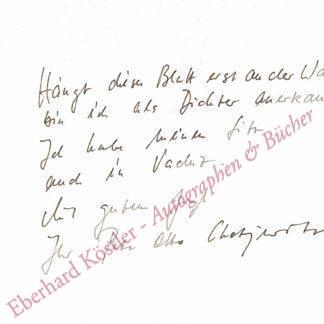 Hängt dieses Blatt erst an der Wa
bin ich als Dichter anerkan
Ich habe meinen Sitz
auch in
Mit gutem
Ihr Otto
Eberhard Köstler - Autographen & Bücher